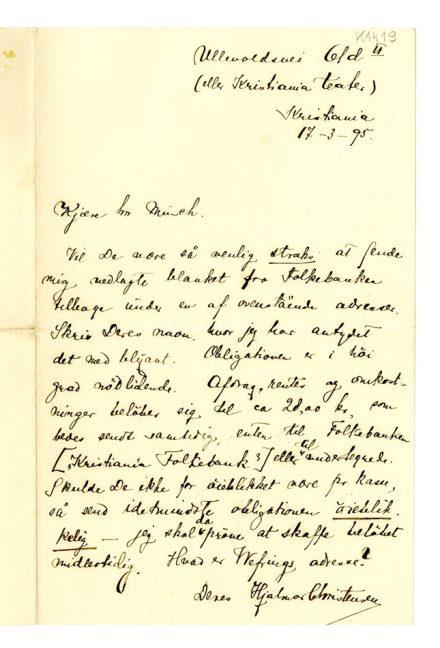 K1419
Ullevoldsvei 61d II
(eller Kristiania teater)
Kristiania
17-3-95.
Kjære hr Munch.
Vil De være så venlig straks at sende
mig vedlagte blanket fra Folkebanken
tilbage under en af ovenstående adresser.
Skriv Deres navn hvor jeg har antydet
det med blyant. Obligationen er i høi
grad nødlidende. Afdrag, renter og omkost-
ninger beløber sig til ca 20,00 kr, som
bedes sendt samtidig, enten til Folkebanken
["Kristiania Folkebank"] eller til undertegnede.
Skulde De ikke for øieblikket være pr kasse,
så send idetmindste obligationen øieblik-
kelig — jeg skal da prøve at skaffe beløbet
midlertidig. Hvad er Wefrings adresse?
Deres Hjalmar Christensen